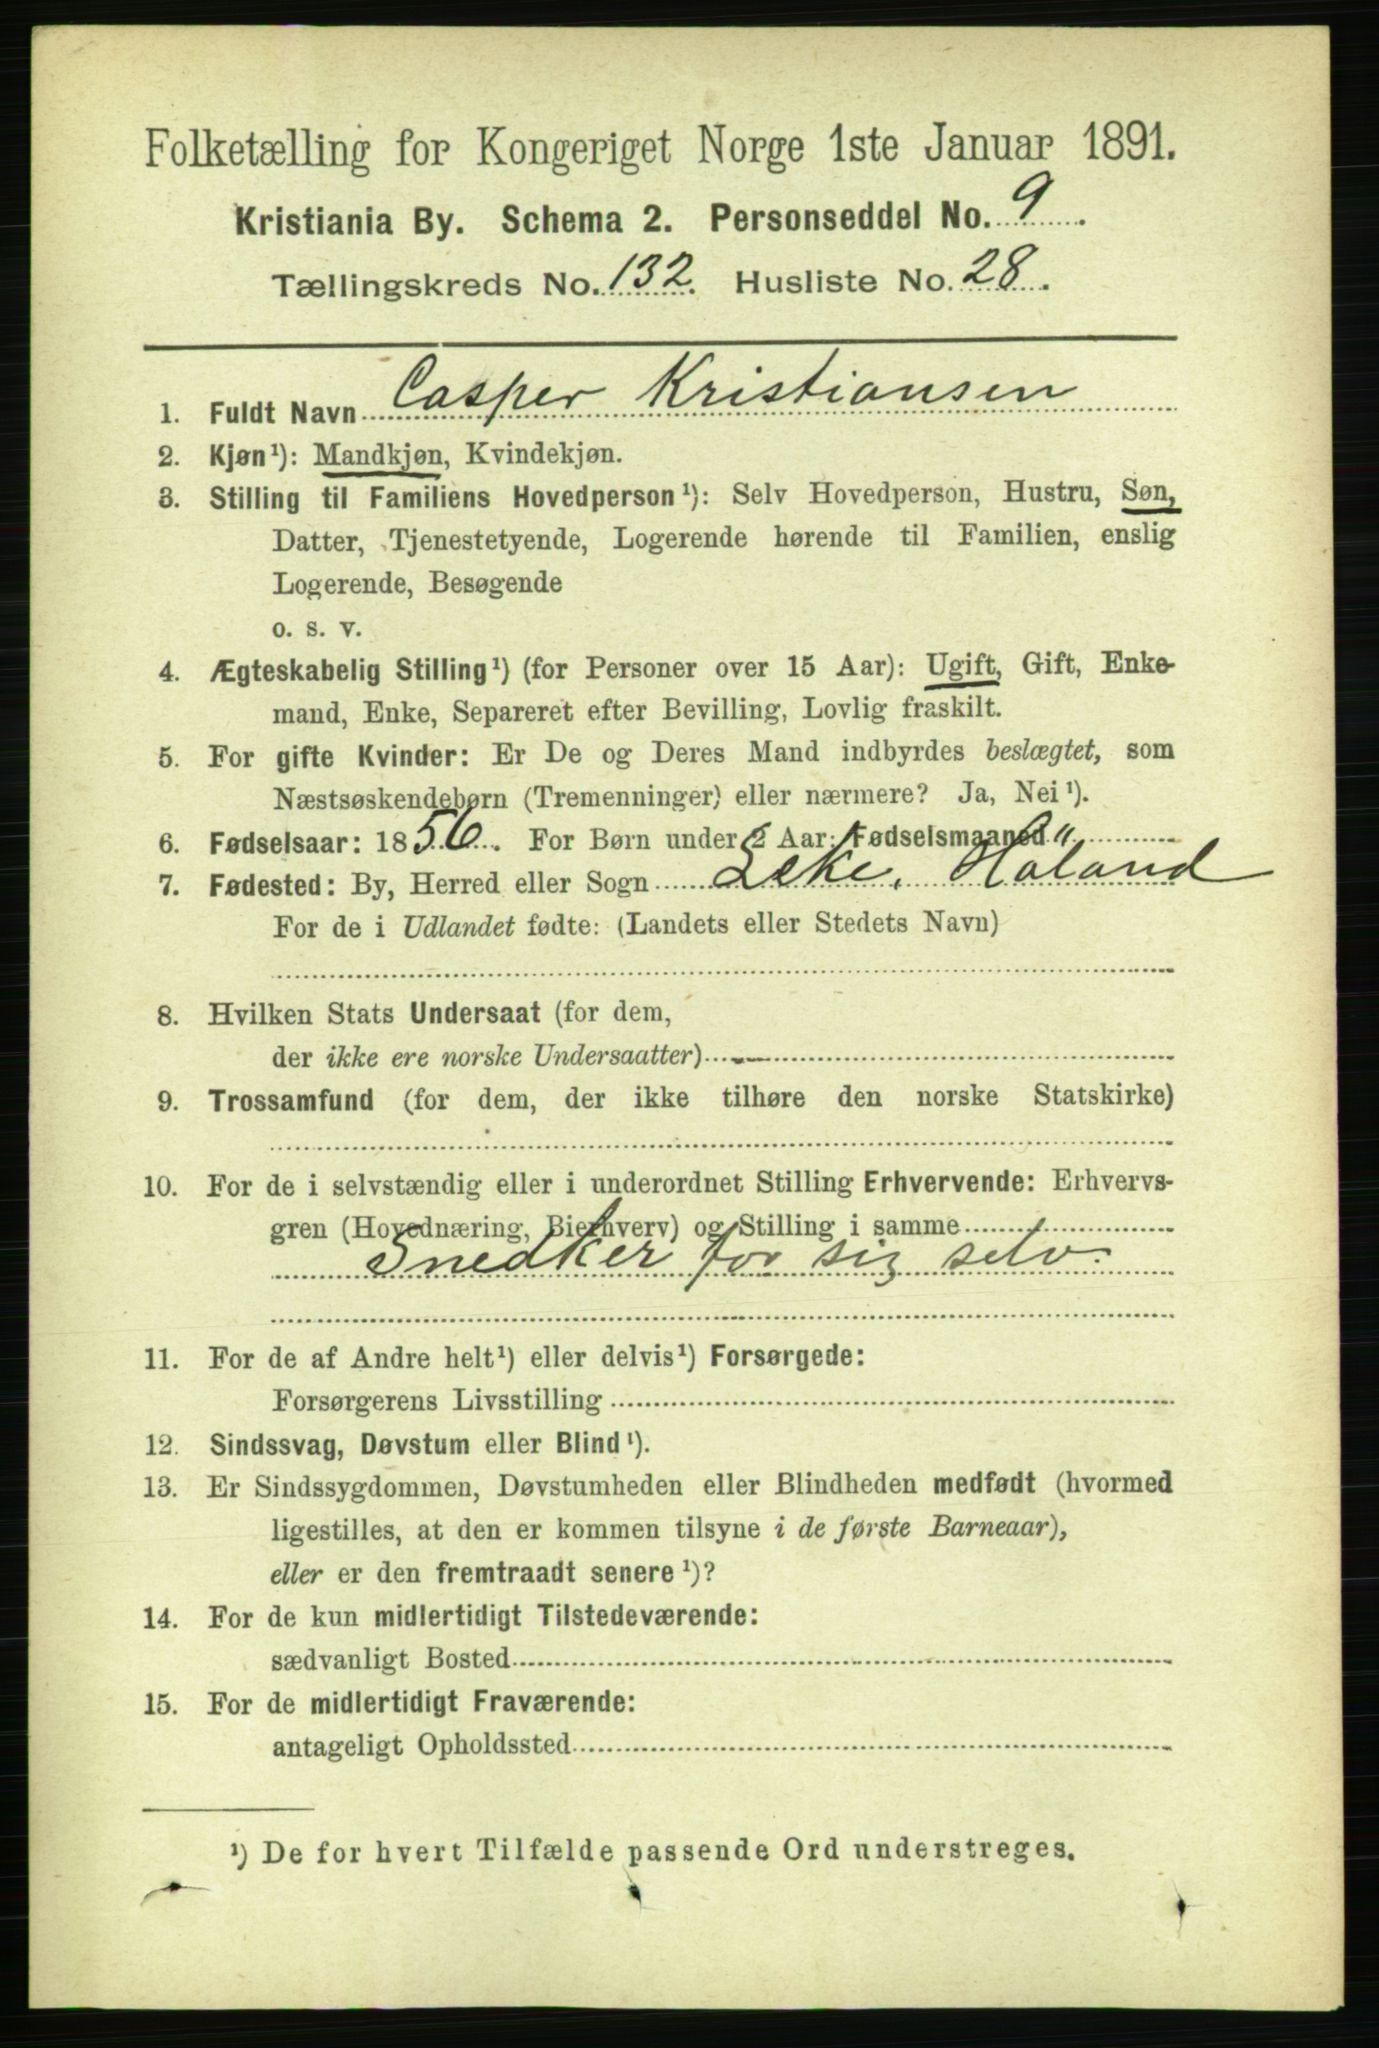 Folketælling for Kongeriget Norge 1ste Januar 1891.
Kristiania By. Schema 2. Personseddel No. 9.
Tællingskreds No. 132. Husliste No. 28.
1. Fuldt Navn Casper Kristiansen
2. Kjøn¹): Mandkjøn, Kvindekjøn.
3. Stilling til Familiens Hovedperson¹): Selv Hovedperson, Hustru, Søn,
Datter, Tjenestetyende, Logerende hørende til Familien, enslig
Logerende, Besøgende
o. s. v.
4. Ægteskabelig Stilling¹) (for Personer over 15 Aar): Ugift, Gift, Enke-
mand, Enke, Separeret efter Bevilling, Lovlig fraskilt.
5. For gifte Kvinder: Er De og Deres Mand indbyrdes beslægtet, som
Næstsøskendebørn (Tremenninger) eller nærmere? Ja, Nei¹).
6. Fødselsaar: 1856. For Børn under 2 Aar: Fødselsmaaned "
7. Fødested: By, Herred eller Sogn Høland
For de i Udlandet fødte: (Landets eller Stedets Navn)
8. Hvilken Stats Undersaat (for dem,
der ikke ere norske Undersaatter) —
9. Trossamfund (for dem, der ikke tilhøre den norske Statskirke)
10. For de i selvstændig eller i underordnet Stilling Erhvervende: Erhvervs-
gren (Hovednæring, Bierhverv) og Stilling i samme
Snedker for sig selv.
11. For de af Andre helt¹) eller delvis¹) Forsørgede:
Forsørgerens Livsstilling
12. Sindssvag, Døvstum eller Blind¹).
13. Er Sindssygdommen, Døvstumheden eller Blindheden medfødt (hvormed
ligestilles, at den er kommen tilsyne i de første Barneaar),
eller er den fremtraadt senere¹)?
14. For de kun midlertidigt Tilstedeværende:
sædvanligt Bosted
15. For de midlertidigt Fraværende:
antageligt Opholdssted
¹) De for hvert Tilfælde passende Ord understreges.